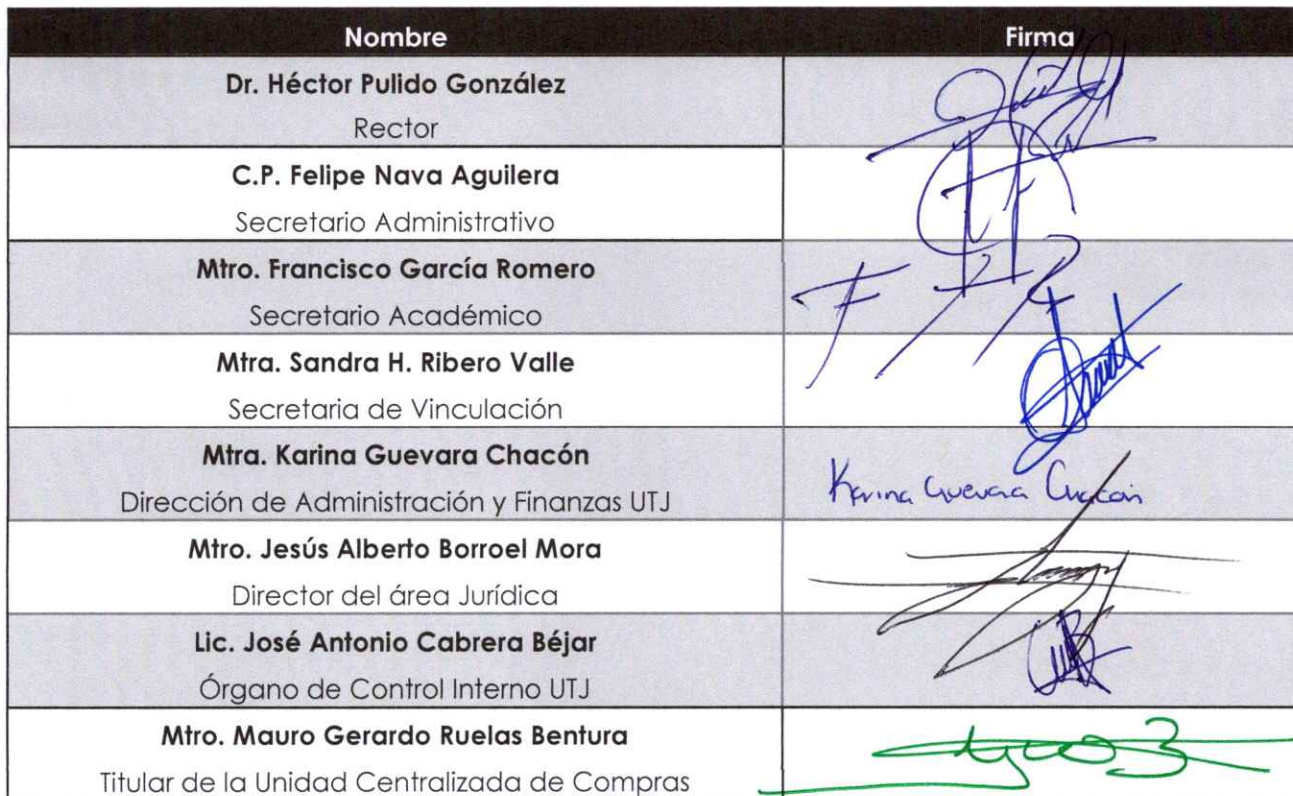 Nombre Firma
Dr. Héctor Pulido González
Rector
C.P. Felipe Nava Aguilera
Secretario Administrativo
Mtro. Francisco García Romero
Secretario Académico
Mtra. Sandra H. Ribero Valle
Secretaria de Vinculación
Mtra. Karina Guevara Chacón
Dirección de Administración y Finanzas UTJ
Karina Guevara Chacón
Mtro. Jesús Alberto Borroel Mora
Director del área Jurídica
Lic. José Antonio Cabrera Béjar
Órgano de Control Interno UTJ
Mtro. Mauro Gerardo Ruelas Bentura
Titular de la Unidad Centralizada de Compras